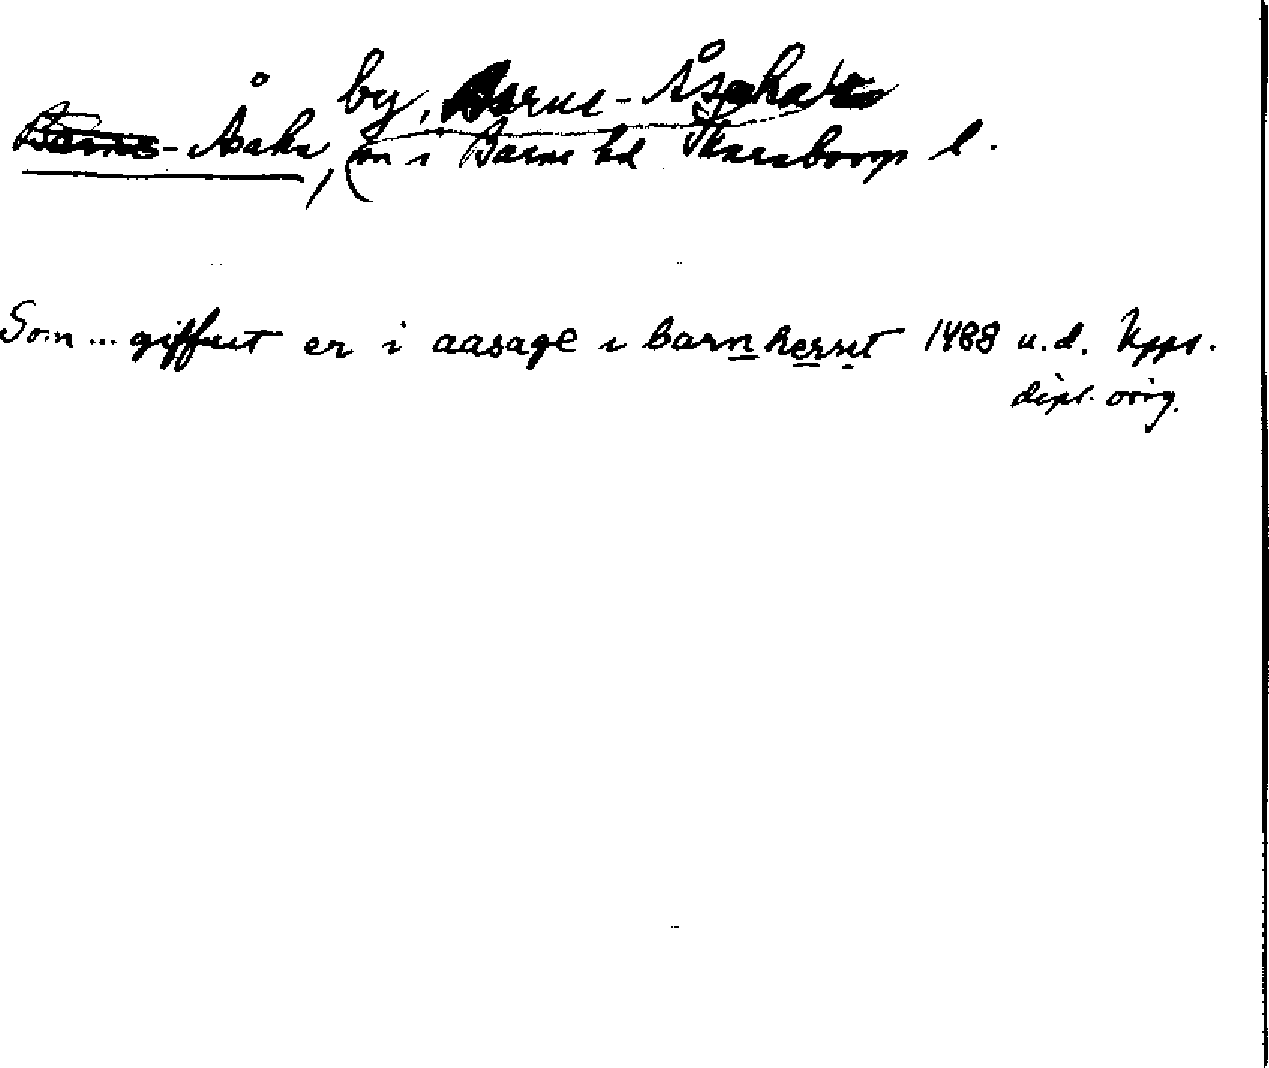 by, Barne-Åsaka
Barne-Åsaka, sn i Barne hd Skaraborgs l.
Som... giffuet er i aasage i barnherret 1488 u.d. Upps.
dipl. orig.